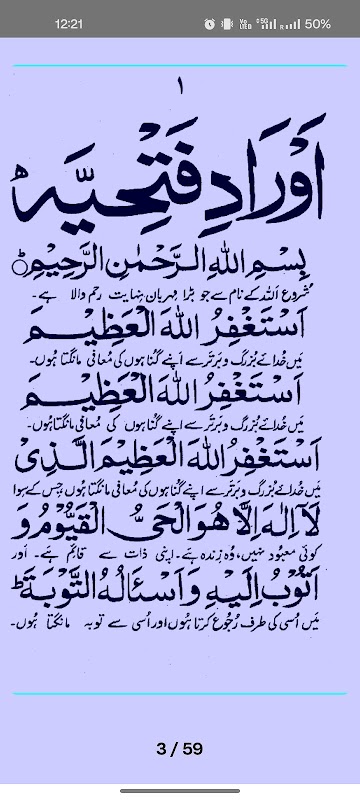 12:21
50%
١
اَوْرَادِ فَتْحِيَّه
بِسْمِ اللهِ الرَّحْمٰنِ الرَّحِيْمِ
شروع اللہ کے نام سے جو بڑا مہربان نہایت رحم والا ہے۔
اَسْتَغْفِرُ اللهَ الْعَظِيْمَ
میں خدائے بزرگ و برتر سے اپنے گناہوں کی معافی مانگتا ہوں۔
اَسْتَغْفِرُ اللهَ الْعَظِيْمَ
میں خدائے بزرگ و برتر سے اپنے گناہوں کی معافی مانگتا ہوں۔
اَسْتَغْفِرُ اللهَ الْعَظِيْمَ الَّذِىْ
میں خدائے بزرگ و برتر سے اپنے گناہوں کی معافی مانگتا ہوں جس کے سوا
لَآ اِلٰهَ اِلَّا هُوَ الْحَىُّ الْقَيُّوْمُ وَ
کوئی معبود نہیں، وہ زندہ ہے۔ اپنی ذات سے قائم ہے۔ اور
اَتُوْبُ اِلَيْهِ وَ اَسْئَالُهُ التَّوْبَةَ ط
میں اُسی کی طرف رُجوع کرتا ہوں اور اُسی سے توبہ مانگتا ہوں۔
3 / 59